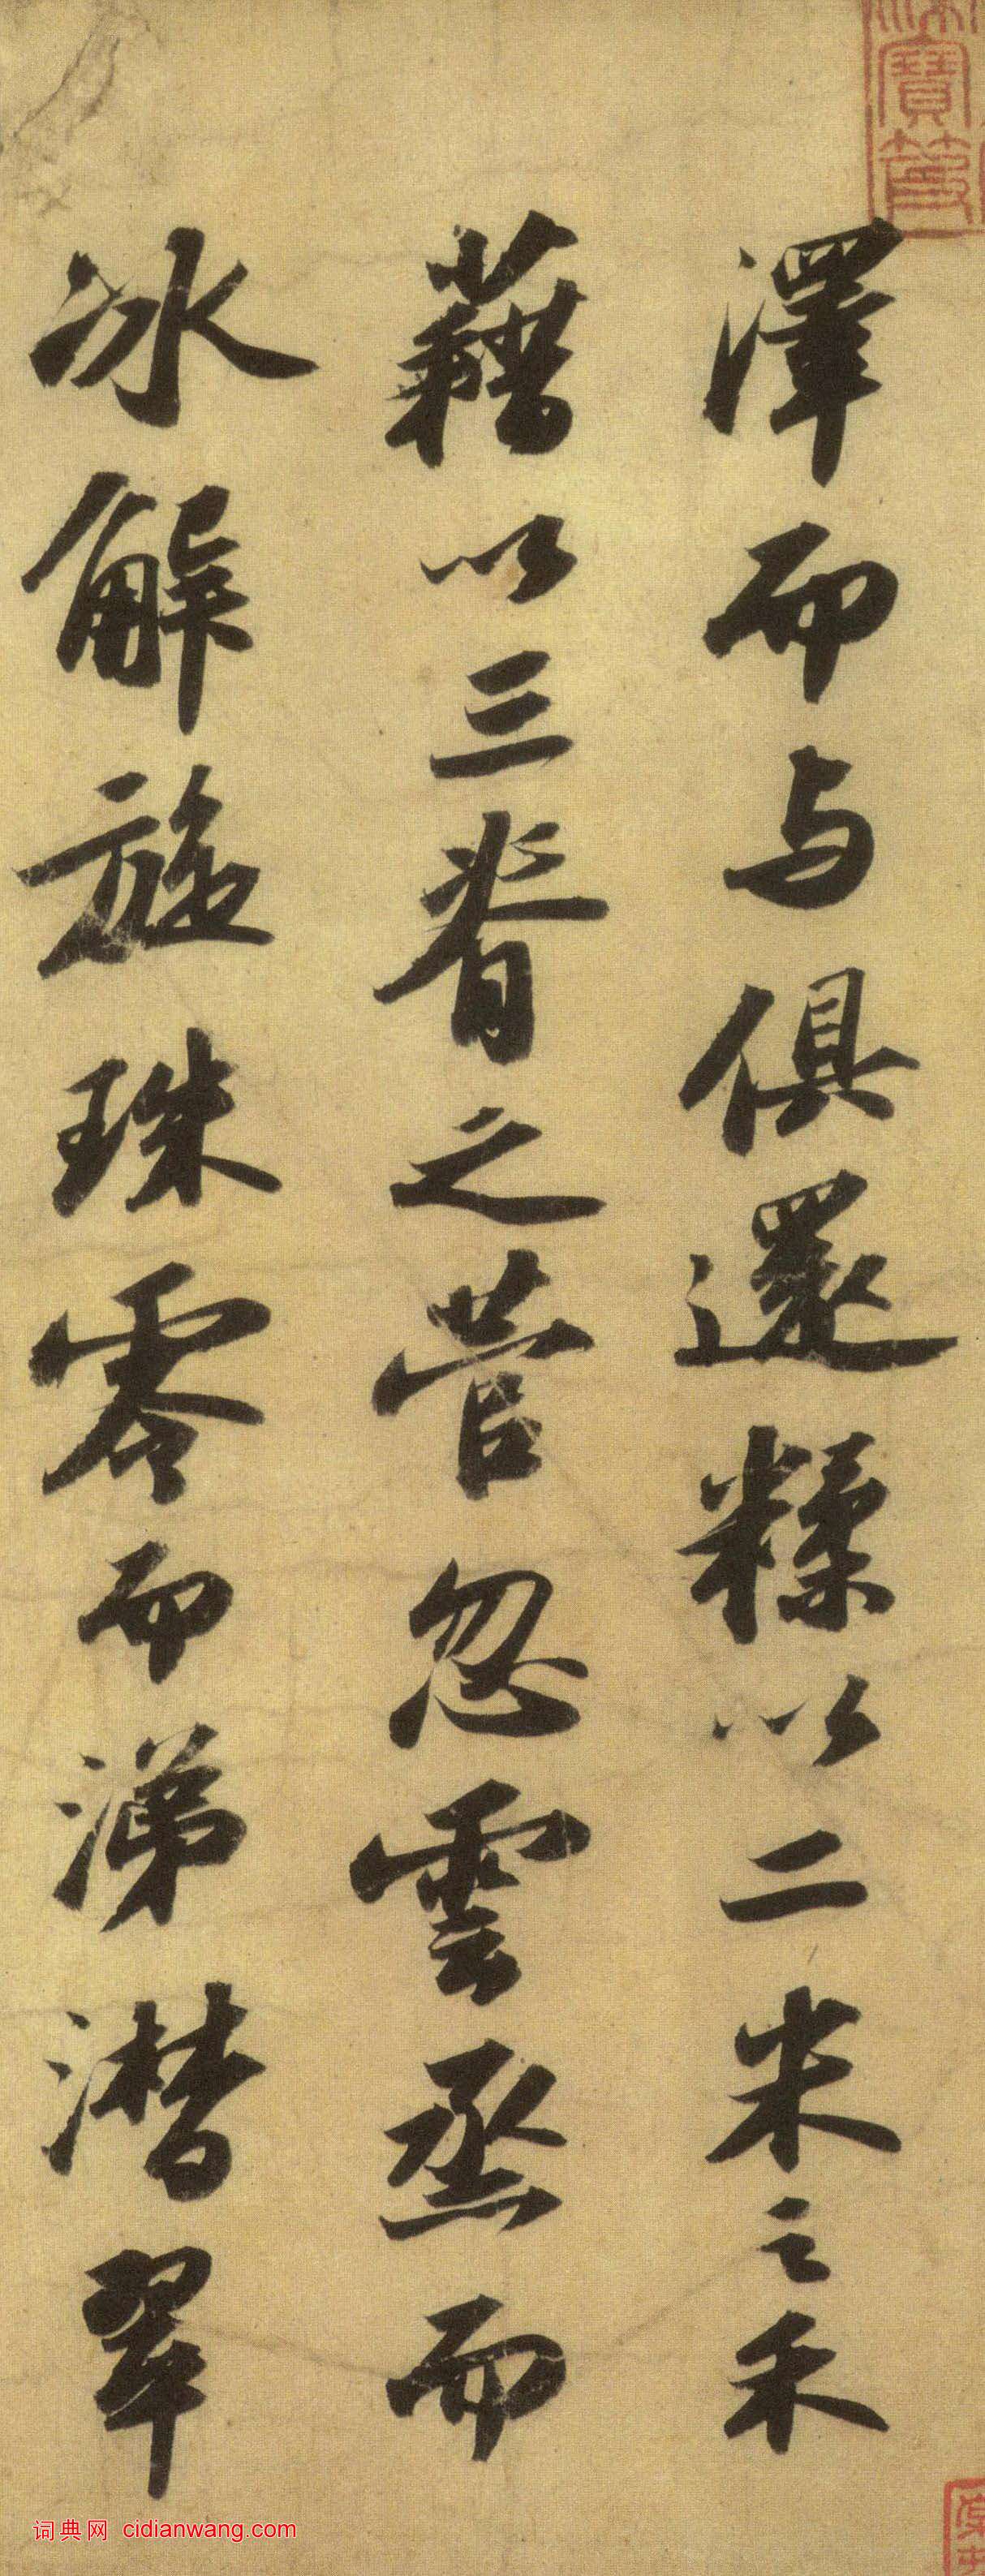 澤而与俱還糅以二米之禾
藉以三脊之菅忽雲烝而
冰解旋珠零而涕潸翠
寶
词典网 cidianwang.com